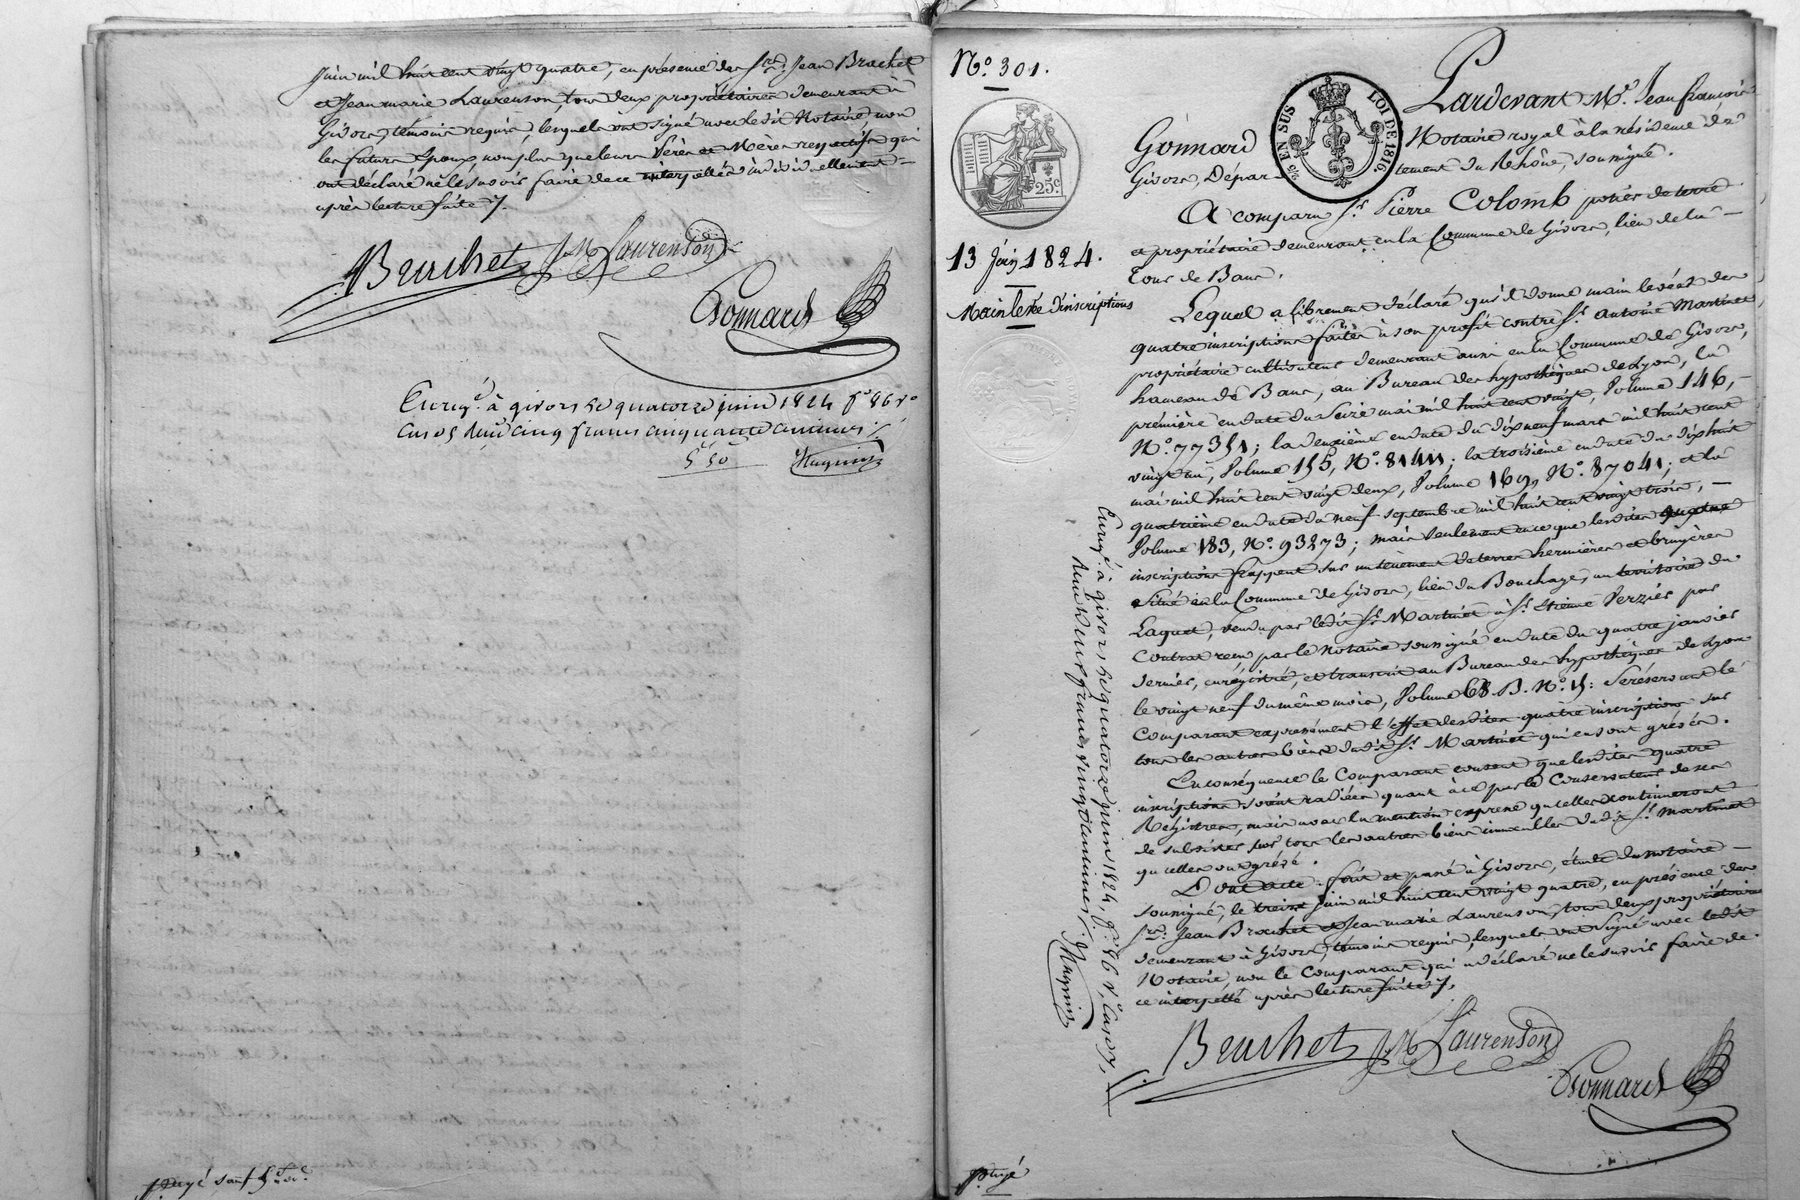 juin mil huit cent vingt quatre, en présence des Srs. Jean Brachet
et Jean marie Laurenson, tous deux propriétaires demeurant à
Givors, témoins requis, lesquels ont signé avec ledit Notaire, non
les futurs époux non plus que leurs Pères et Mères respectifs qui
ont déclaré ne le savoir faire de ce interpellés individuellement
après lecture faite
Bruchet J M Laurenson
Gonnard
Enregé. à givors le quatorze juin 1824 fo. 86 vo.
cases reçu cinq francs cinquante centimes
5 50
payé sauf
No. 301.
25 EN SUS LOI DE 1816
25c
13 Juin 1824.
Mainlevée d'inscriptions
Pardevant Me. Jean François
Gonnard Notaire royal à la résidence de
Givors, Département du Rhône, soussigné.
A comparu Sr. Pierre Colomb potier de terre
et propriétaire demeurant en la Commune de Givors, lieu de la
Tour de Bans.
Lequel a librement déclaré qu'il donne main levée des
quatre inscriptions faites à son profit contre Sr. Antoine Martinet
propriétaire cultivateur demeurant aussi en la Commune de Givors,
hameau de Bans, au Bureau des hypothèques de Lyon, la
première en date du seize mai mil huit cent vingt, Volume 146,
No. 77351; la deuxième en date du dix neuf mars mil huit cent
vingt un, Volume 155, No. 81411; la troisième en date du dix huit
mai mil huit cent vingt deux, Volume 169, No. 87041; et la
quatrième en date du neuf septembre mil huit cent vingt trois,
Volume 183, No. 93273; mais seulement en ce que lesdites quatre
inscriptions frappent sur un tènement de terres hermières et bruyères
situé en la Commune de Givors, lieu du Bouchage, au territoire du
Laquet, vendu par ledit Sr. Martinet à Sr. Etienne Verzier par
Contrat reçu par le Notaire soussigné en date du quatre janvier
dernier, enrégistré, et transcrit au Bureau des hypothèques de Lyon
le vingt neuf du même mois, Volume 68. B. No. 15: Se réservant le
Comparant expressément l'effet desdites quatre inscriptions sur
tous les autres biens dudit Sr. Martinet qui en sont grévés.
En conséquence le Comparant consent que lesdites quatre
inscriptions soient radiées quant à ce par le Conservateur de ses
Registres, mais avec la mention expresse qu'elles continueront
de subsister sur tous les autres biens immeubles dudit Sr. Martinet
qu'elles ont grévé.
Dont acte. fait et passé à Givors, étude du notaire
soussigné, le treize juin mil huit cent vingt quatre, en présence des
Srs. Jean Brachet et Jean marie Laurenson, tous deux propriétaires
demeurant à Givors, témoins requis, lesquels ont signé avec ledit
Notaire, non le Comparant qui a déclaré ne le savoir faire de
ce interpellé après lecture faite
Bruchet J M Laurenson
Gonnard
Enregé. à givors le quatorze juin 1824, fo. 86 vo.
reçu deux francs vingt centimes
payé